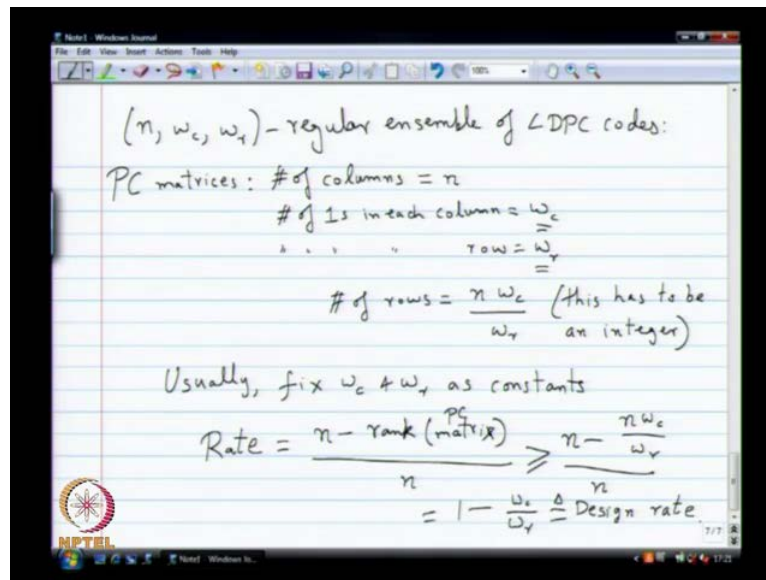 Note1 - Windows Journal
File Edit View Insert Actions Tools Help
100%
(n, w_c, w_r) - regular ensemble of LDPC codes:
PC matrices: # of columns = n
# of 1s in each column = w_c
" " " " row = w_r
# of rows = n w_c / w_r (this has to be an integer)
Usually, fix w_c & w_r as constants
Rate = (n - rank (PC matrix)) / n ≥ (n - n w_c / w_r) / n
= 1 - w_c / w_r ≜ Design rate.
7/7
NPTEL
Note1 - Windows Jo...
17:21